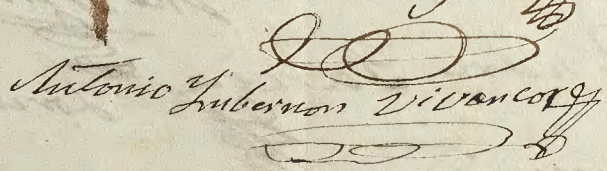 Antonio Ymbernon Vivancos